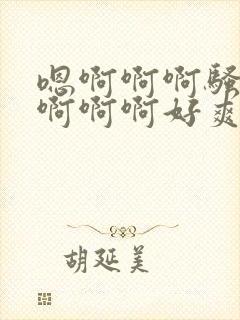 嗯啊啊啊骚
啊啊啊好爽
胡延美